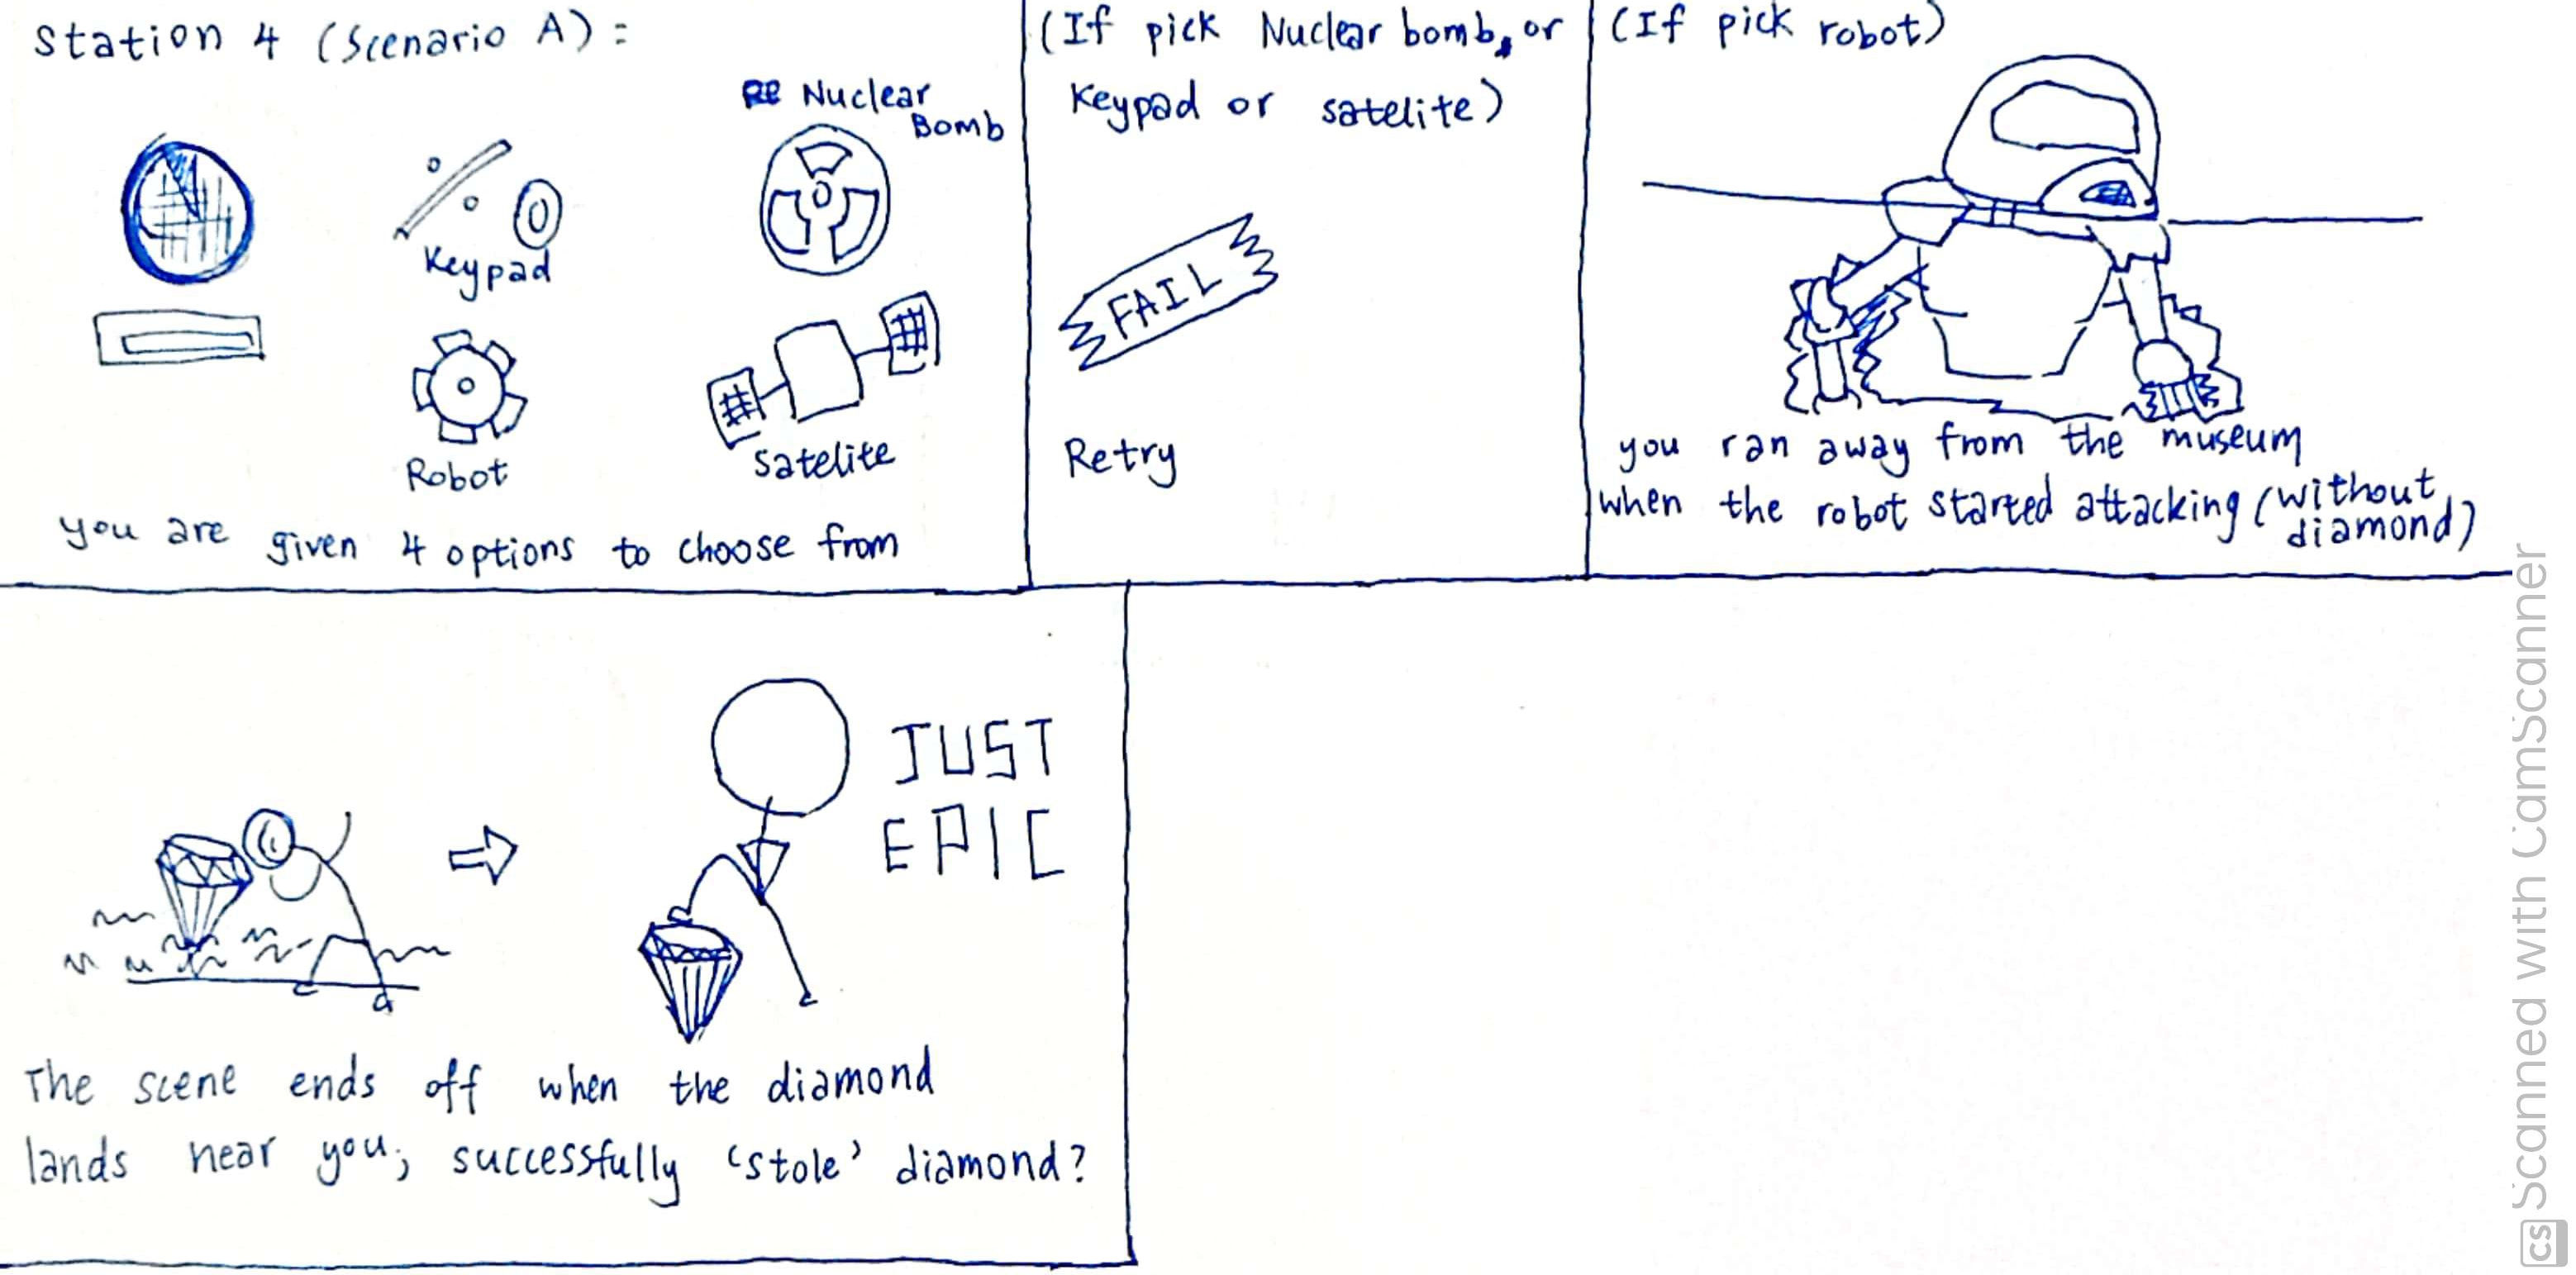 Station 4 (Scenario A) :
Nuclear
Bomb
Keypad
Robot
Satelite
you are given 4 options to choose from
(If pick Nuclear bomb, or
Keypad or satelite)
FAIL
Retry
(If pick robot)
you ran away from the museum
when the robot started attacking (without
diamond)
JUST
EPIC
The scene ends off when the diamond
lands near you; successfully 'stole' diamond?
CS Scanned with CamScanner